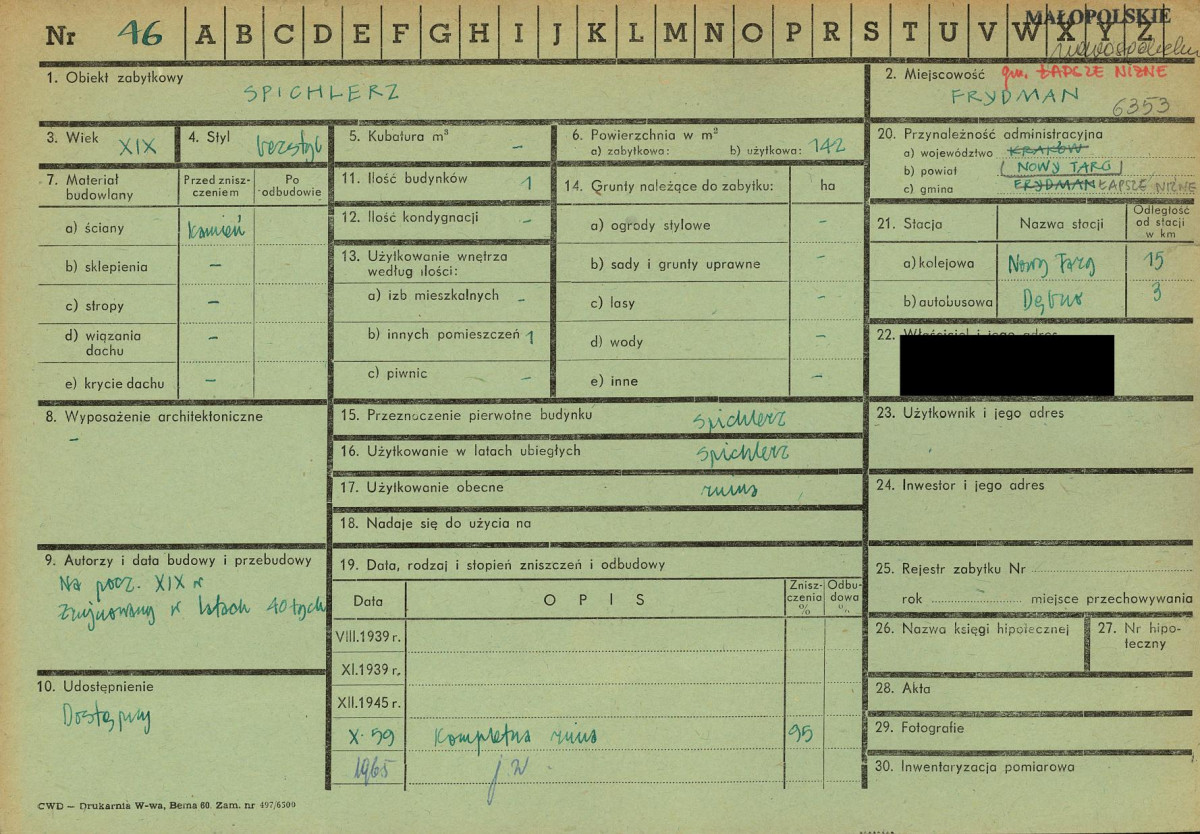 Nr 46 A B C D E F G H I J K L M N O P R S T U V W X Y Z
MAŁOPOLSKIE
1. Obiekt zabytkowy
SPICHLERZ
2. Miejscowość gm. ŁAPSZE NIŻNE
FRYDMAN
6353
3. Wiek XIX
4. Styl bezstyl
5. Kubatura m³ –
6. Powierzchnia w m²
a) zabytkowa: b) użytkowa: 142
7. Materiał budowlany
Przed zniszczeniem
Po odbudowie
a) ściany kamień
b) sklepienia –
c) stropy –
d) wiązania dachu –
e) krycie dachu –
8. Wyposażenie architektoniczne
–
9. Autorzy i data budowy i przebudowy
Na pocz. XIX w
Zrujnowany w latach 40tych
10. Udostępnienie
Dostępny
11. Ilość budynków 1
12. Ilość kondygnacji –
13. Użytkowanie wnętrza
według ilości:
a) izb mieszkalnych –
b) innych pomieszczeń 1
c) piwnic –
14. Grunty należące do zabytku: ha
a) ogrody stylowe –
b) sady i grunty uprawne –
c) lasy –
d) wody –
e) inne –
15. Przeznaczenie pierwotne budynku spichlerz
16. Użytkowanie w latach ubiegłych spichlerz
17. Użytkowanie obecne ruina
18. Nadaje się do użycia na
19. Data, rodzaj i stopień zniszczeń i odbudowy
Data OPIS Zniszczenia % Odbudowa %
VIII.1939 r.
XI.1939 r.
XII.1945 r.
X·59 Kompletna ruina 95
1965 j w
20. Przynależność administracyjna
a) województwo KRAKÓW
b) powiat (NOWY TARG)
c) gmina FRYDMAN ŁAPSZE NIŻNE
21. Stacja Nazwa stacji Odległość od stacji w km
a) kolejowa Nowy Targ 15
b) autobusowa Dębno 3
22. Właściciel i jego adres
23. Użytkownik i jego adres
24. Inwestor i jego adres
25. Rejestr zabytku Nr
rok miejsce przechowywania
26. Nazwa księgi hipotecznej
27. Nr hipoteczny
28. Akta
29. Fotografie
30. Inwentaryzacja pomiarowa
CWD — Drukarnia W-wa, Bema 60. Zam. nr 497/6500